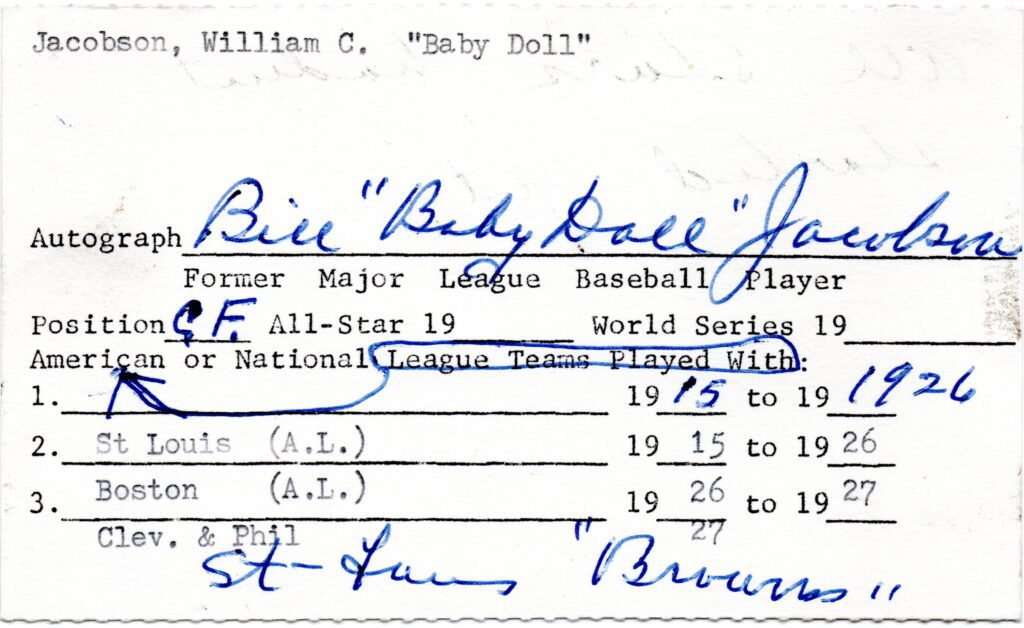 Jacobson, William C. "Baby Doll"
Autograph Bill "Baby Doll" Jacobson
Former Major League Baseball Player
Position C.F. All-Star 19 World Series 19
American or National League Teams Played With:
1. 19 15 to 19 1926
2. St Louis (A.L.) 19 15 to 19 26
3. Boston (A.L.) 19 26 to 19 27
Clev. & Phil 27
St- Louis "Browns"